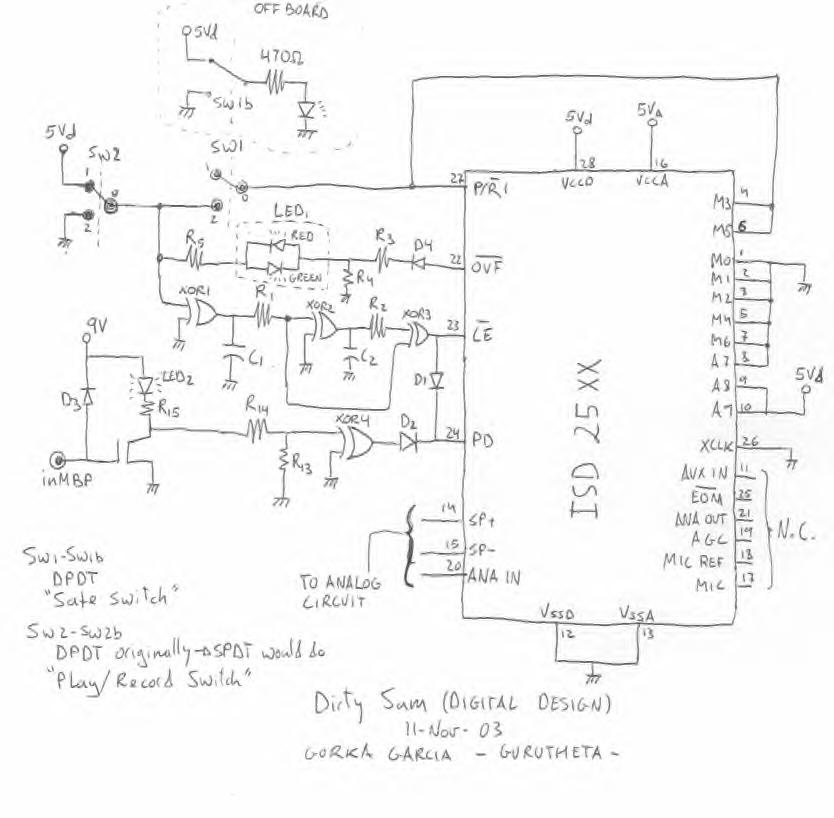 OFF BOARD
5Vd
470Ω
SW1b
5Vd
SW2
1
2
SW1
2
LED1
RED
GREEN
R5
R3
D4
R4
XOR1
R1
XOR2
R2
XOR3
C1
C2
9V
LED2
D3
R15
R14
XOR4
D2
D1
R13
inMBP
5Vd
5VA
28
16
VCCD
VCCA
27 P/R̅ 1
22 O̅V̅F̅
23 L̅E̅
24 PD
14 SP+
15 SP-
20 ANA IN
TO ANALOG
CIRCUIT
ISD 25XX
M3 4
M5 6
M0 1
M1 2
M2 3
M4 5
M6 7
A7 8
A8 9
A9 10
5Vd
XCLK 26
AUX IN 11
E̅O̅M̅ 25
ANA OUT 21
AGC 19
MIC REF 18
MIC 17
N.C.
VSSD
VSSA
12
13
SW1-SW1b
DPDT
"Safe Switch"
SW2-SW2b
DPDT originally→SPDT would do
"Play/Record Switch"
Dirty Sam (DIGITAL DESIGN)
11-Nov-03
GORKA GARCIA - GURUTHETA -